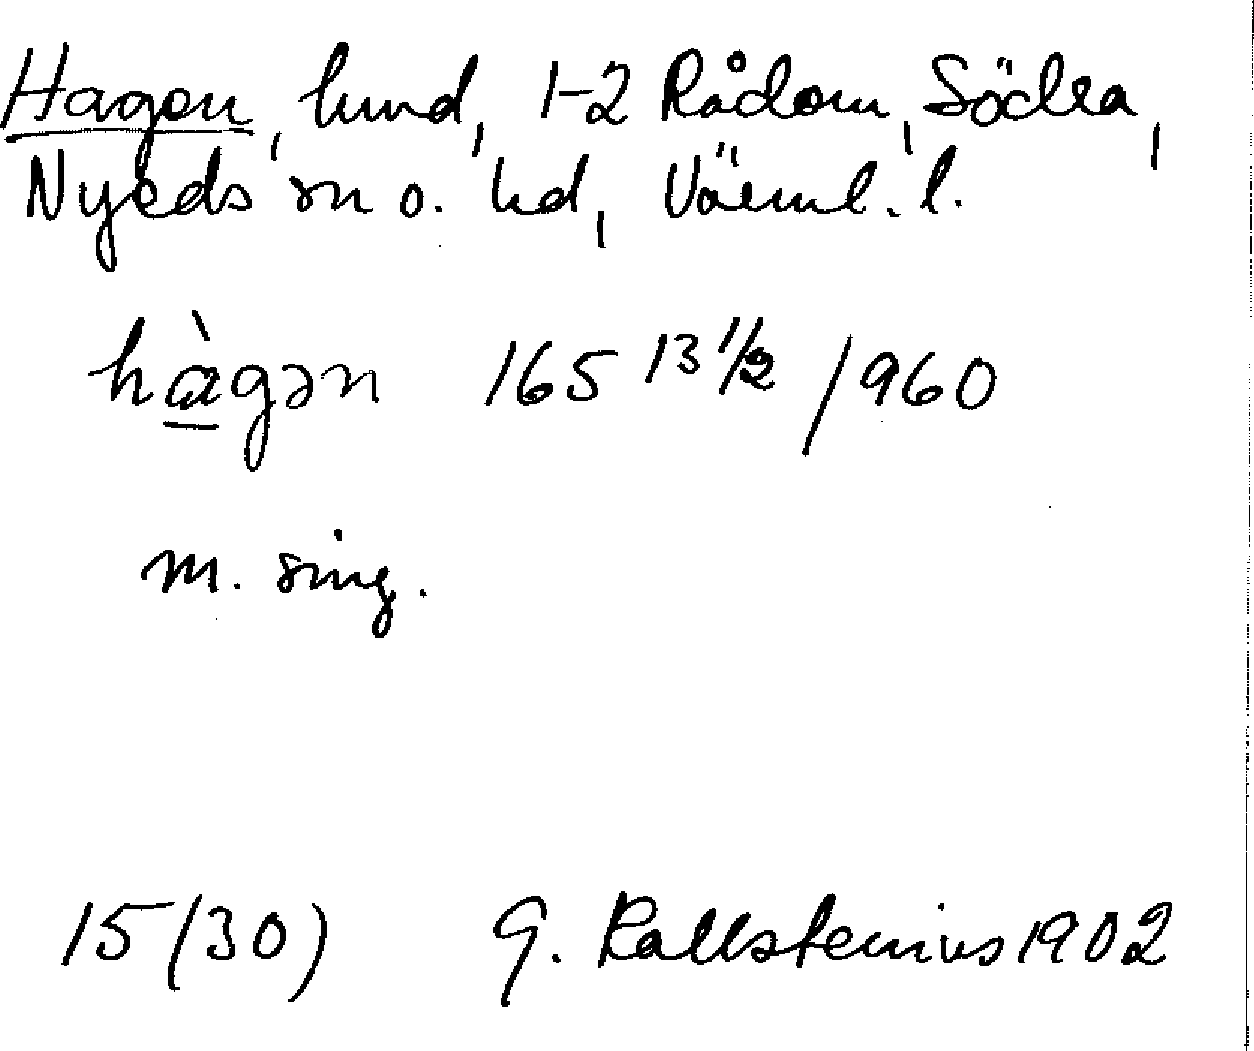 Hagen, lund, 1-2 Rådom, Södra,
Nyeds sn o. hd, Värml. l.
hàgən 165 13 1/2 / 960
m. sing.
15 (30) G. Kallstenius 1902